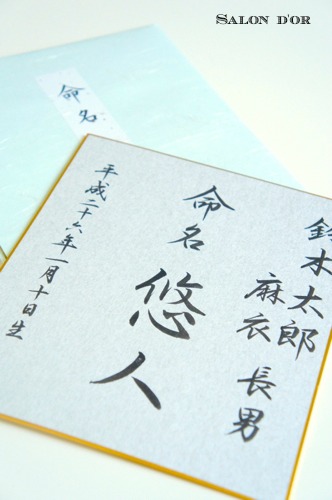 SALON D'OR
命名
鈴木太郎
麻衣
長男
命名
悠人
平成二十六年一月十日生